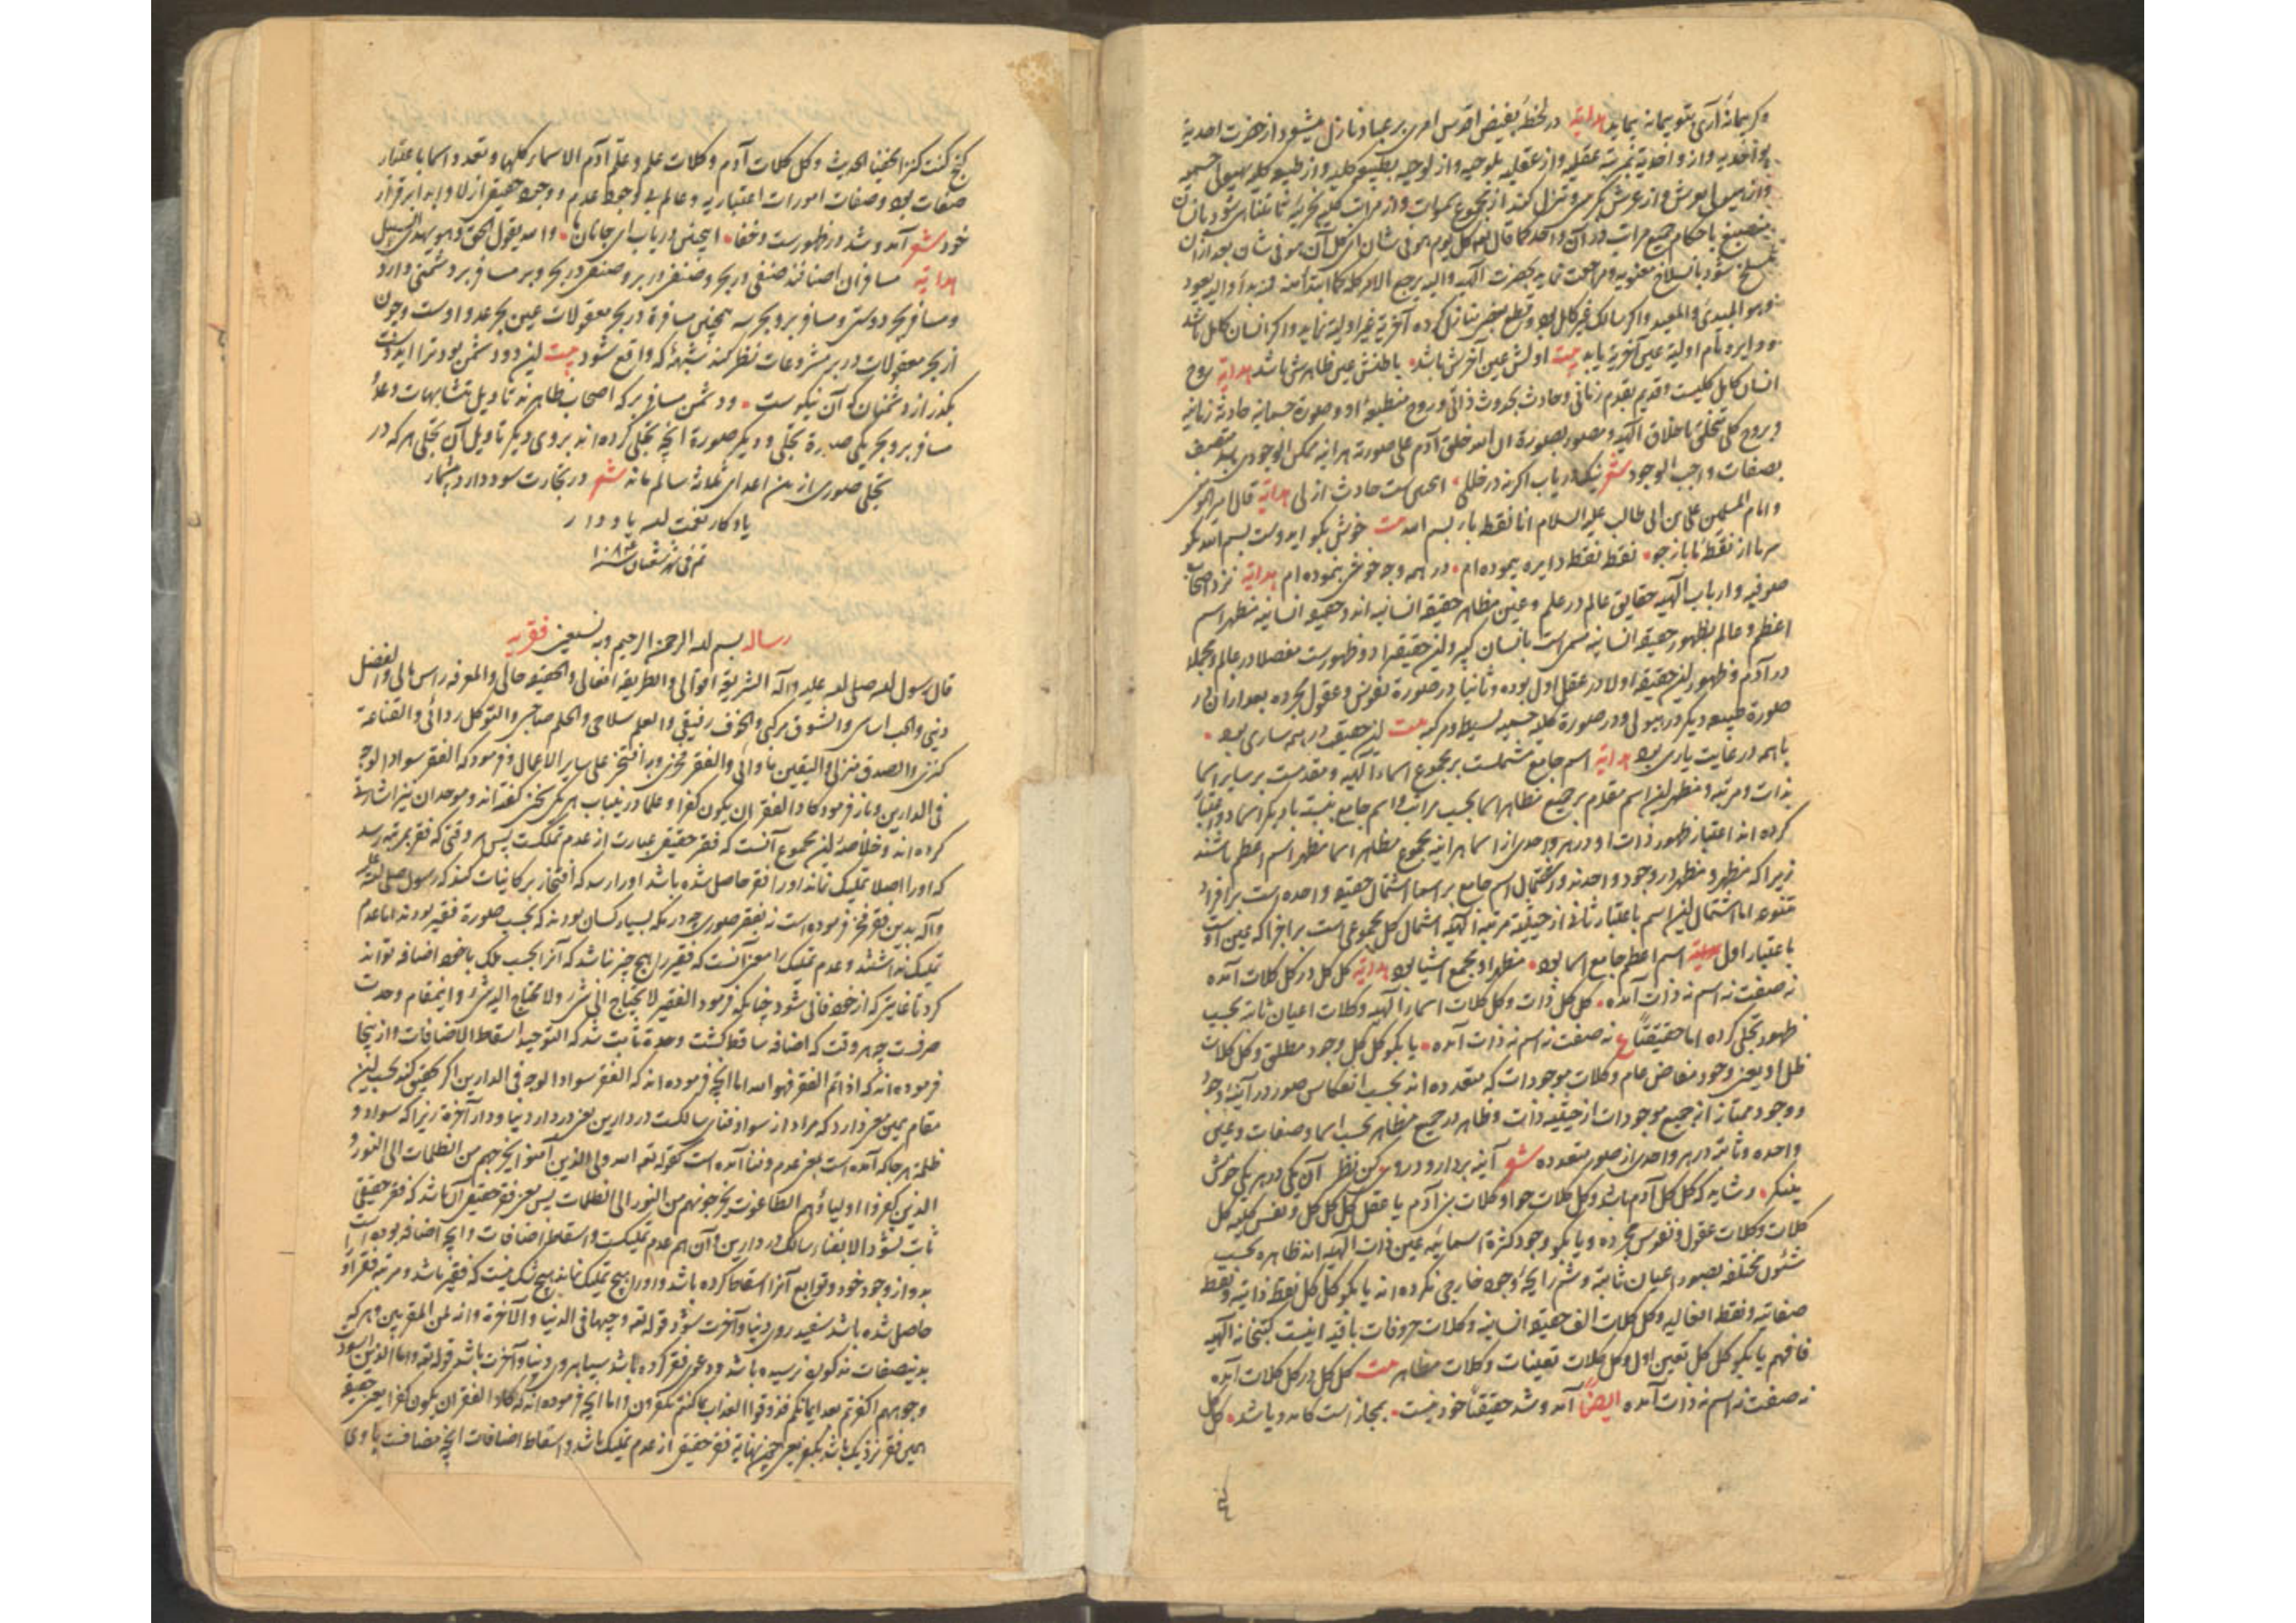 وکریمانهٔ آری بتو پیمانه پیماید هدایة در لحظهٔ بفیض اقدس امری بر عباد نازل میشود از حضرت احدیة
بواحدیه و از واحدیة بمرتبه عقلیه و از عقلیه بلوحیه و از لوحیه بطبیعة کلیه و از طبیعة کلیه بهیولی جسمیه
و از هیولی بعرش و از عرش بکرسی و تنزل کند از مجموع سموات و از مراتب کلیه بجزئیه تا منتهی شود بانسان
منصبغ باحکام جمیع مراتب در آن واحد کما قال الله کل یوم هو فی شان ای کل آن هو فی شان بعد از آن
منسلخ شود بانسلاخ معنویه و مراجعت نماید بحضرت الهیه و الیه یرجع الامر کله کما ابتدا منه فمنه بدأ و الیه یعود
و هو المبدئ و المعید و اگر سالک غیر کامل بود و قطع منازل کرده آخریة غیر اولیة نماید و اگر انسان کامل باشد
و دایره تمام اولیة عین آخریة یابد بیت اولش عین آخرش باشد باطنش عین ظاهرش باشد هدایة روح
انسان کامل کلیست و قدیم بقدم زمانی و حادث بحدوث ذاتی و روح منطبعهٔ او و صورة جسمانیه حادثه زمانیه
و روح کلی متخلق باخلاق الهیه و مصور بصورة ان الله خلق آدم علی صورته هر آینه ممکن الوجودی باشد متصف
بصفات واجب الوجود شعر نیک دریاب اگر نه در خللی اینچنین است حادث ازلی هدایة قال امیر المؤمنین
و امام المسلمین علی بن ابی طالب علیه السلام انا نقطة باء بسم الله بیت خوش بگو ای دوست بسم الله بگو
سر ما از نقطهٔ با باز جو نقطه نقطه دایره پیموده‌ام در همه وجه خوش بنموده‌ام هدایة نزد اصحاب
صوفیه و ارباب الهیه حقایق عالم در علم و عین مظاهر حقیقة انسانیه‌اند و حقیقة انسانیه مظهر اسم
اعظم و عالم بظهور حقیقة انسانیه مسمی است بانسان کبیر و این حقیقة را دو ظهورست مفصلا در عالم و مجملا
در آدم و ظهور این حقیقة اولا در عقل اول بوده و ثانیا در صورة نفوس و عقول مجرده بعد از آن در
صورة طبیعه دیگر در هیولی و در صورة کلیه جسمیه بسیط و مرکبه بیت این حقیقت در همه ساری بود
با همه در غایت یاری بود هدایة اسم جامع مشتملست بر مجموع اسماء الهیه و مقدمست بر سایر اسما
بذات و مرتبه و مظهر این اسم مقدم بر جمیع مظاهر اسما بحسب مراتب و اسم جامع بنسبت با دیگر اسما دو اعتبار
کرده‌اند اعتبار ظهور ذات او در هر واحدی از اسما هر آینه مجموع مظاهر اسما مظهر اسم اعظم باشند
زیرا که مظهر و مظهر در وجود واحدند و اشتمال اسم جامع بر اسما اشتمال حقیقة واحده است بر افراد
متنوعه اما اشتمال این اسم باعتبار ثانی از حیثیة مرتبة الهیه اشتمال کل مجموعی است بر اجزا که عین اوست
باعتبار اول بیت اسم اعظم جامع اسما بود مظهر او مجمع اشیا بود هدایة کل کل در کل کلات آمده
نه صفت نه اسم نه ذات آمده کل کل ذات و کل کلات اسماء الهیه و کلات اعیان ثابته بحسب
ظهور تجلی کرده اما حقیقتا ع نه صفت نه اسم نه ذات آمده یا بگو کل کل وجود مطلق و کل کلات
ظل او یعنی وجود مفاض عام و کلات موجودات که متعدده‌اند بحسب انعکاس صور در آینهٔ وجود
و وجود ممتاز از جمیع موجودات از حیثیه ذات و ظاهر در جمیع مظاهر بحسب اسما و صفات و عین
واحده و ثابته در هر واحدی از صور متعدده شعر آینه بردار و درو کن نظر آن یکی در هر یکی خوش
مینگر و شاید که کل کل آدم باشد و کل کلات حوا و کلات بنی آدم یا عقل کل کل کل و نفس کلیه کل
کلات و کلات عقول و نفوس مجرده و یا بگو وجود کثرة اسمائیه عین ذات الهیه‌اند ظاهره بحسب
شئون مختلفه بصور اعیان ثابته و شم رایحهٔ وجود خارجی نکرده‌اند یا بگو کل کل نقطه ذاتیه و نقطه
صفاتیه و نقطه افعالیه و کل کلات الف حقیقة انسانیه و کلات حروفات باقیه اینست کتبخانه الهیه
فافهم یا بگو کل کل تعین اول و کل کلات تعینات و کلات مظاهر بیت کل کل در کل کلات آمده
نه صفت نه اسم نه ذات آمده ایضا آمد و شد حقیقتا خود نیست بمجاز است کامد و باشد کل کل
کنج
کنج کنت کنزا مخفیا الحدیث و کل کلات آدم و کلات علم و علم آدم الاسماء کلها و تعدد اسما باعتبار
صفات بود و صفات امورات اعتباریه و عالم بی وجود عدم و وجود حقیقی ازلا و ابدا برقرار
خود شعر آمد و شد در ظهورست و خفا اینچنین دریاب ای جان ما و الله یقول الحق و هو یهدی السبیل
هدایة مسافران اصنافند صنفی در بحر و صنفی در بر و صنفی در بحر و بر مسافر بر دشمنی دارد
و مسافر بحر دو ستر و مسافر بر و بحر سه همچنین مسافرة در بحر معقولات عین بحر عدو اوست و چون
از بحر معقولات در بر مشروعات نظر کند شبههٔ که واقع شود بیت این دو دشمن بود ترا ای دوست
بگذر از دشمنان که آن نیکوست و دشمن مسافر بر که اصحاب ظاهرند تاویل متشابهات و عدو
مسافر بر و بحر یکی صورة تجلی و دیگر صورة انچه تجلی کرده‌اند بر وی و دیگر تاویل آن تجلی هر که در
تجلی صوری از من اعدای ثلاثه سالم ماند شعر در تجارت سود دارد بیشمار
یادگار نعمت الله یاد دار
تم فی شهر شعبان سنه ۱۰۸۴
رساله بسم الله الرحمن الرحیم و به نستعین فقریه
قال رسول الله صلی الله علیه و آله الشریعة اقوالی و الطریقة افعالی و الحقیقة حالی و المعرفة راس مالی و العقل
دینی و الحب اساسی و الشوق مرکبی و الخوف رفیقی و العلم سلاحی و الحلم صاحبی و التوکل ردائی و القناعة
کنزی و الصدق منزلی و الیقین ماوائی و الفقر فخری و به افتخر علی سایر الاعمال و فرمود که الفقر سواد الوجه
فی الدارین و باز فرمود کاد الفقر ان یکون کفرا و علما درینباب هر یکی سخن گفته‌اند و موحدان نیز اشارتی
کرده‌اند و خلاصهٔ این مجموع آنست که فقر حقیقی عبارت از عدم تملکست پس هر وقتی که فقر بمرتبه رسد
که او را اصلا تملیک نماند او را فقر حاصل شده باشد او را رسد که افتخار بر کاینات کند که رسول صلی الله علیه
و آله بدین فقر فخر فرموده است نه بفقر صوری چه در مکه بسیار کسان بودند که بحسب صورة فقیر بودند اما عدم
تملیک نداشتند و عدم تملیک را معنی آنست که فقیر را هیچ چیز نباشد که آنرا بحسب ملک با خود اضافه تواند
کرد تا غایتی که از خود فانی شود چنانکه فرمود الفقیر لا یحتاج الی شئ و لا یحتاج الیه شئ و اینمقام وحدت
صرفست چه هر وقت که اضافه ساقط گشت وحدة ثابت شد که التوحید اسقاط الاضافات و از ینجا
فرموده‌اند که اذا تم الفقر فهو الله اما انچه فرموده‌اند که الفقر سواد الوجه فی الدارین اگر تحقیق کند بحسب این
مقام همین معنی دارد که مراد از سواد فنای سالکست در دارین یعنی در دار دنیا و دار آخرة زیرا که سواد و
ظلمة هر جا که آمده است بمعنی عدم و فنا آمده است کقوله تعه الله ولی الذین آمنوا یخرجهم من الظلمات الی النور و
الذین کفروا اولیاؤهم الطاغوت یخرجونهم من النور الی الظلمات پس یعنی فقر حقیقی آن باشد که فقر حقیقی
ثابت نشود الا بفناء سالک در دارین و آن هم عدم تملیکست و اسقاط اضافات و انچه اضافه بوده است
بدو از وجود خود و توابع آنرا اسقاط کرده باشد و او را هیچ تملیک نماند هیچ شک نیست که فقیر باشد و مرتبه فقر او
حاصل شده باشد سفید روی دنیا و آخرت شود قوله تعه وجیها فی الدنیا و الآخرة و انه لمن المقربین و هر که
بدینصفات مذکوره نرسیده باشد و دعوی فقر کرده باشد سیاه روی دنیا و آخرت باشد قوله تعه و اما الذین اسودت
وجوههم اکفرتم بعد ایمانکم فذوقوا العذاب بما کنتم تکفرون و اما انچه فرموده‌اند که کاد الفقر ان یکون کفرا یعنی حقیقة
همین فقر نزدیک باشد بکفر یعنی چون نهایة فقر حقیقی از عدم تملیک باشد و اسقاط اضافات انچه مضافست با وی